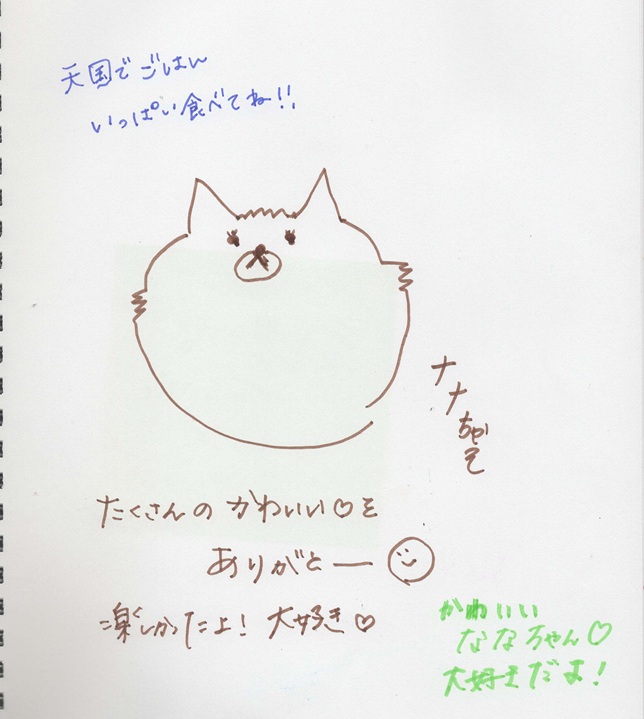 天国でごはん
いっぱい食べてね!!
ナナちゃん
たくさんのかわいい♡を
ありがとー
楽しかったよ!大好き♡
かわいい
ななちゃん♡
大好きだよ!